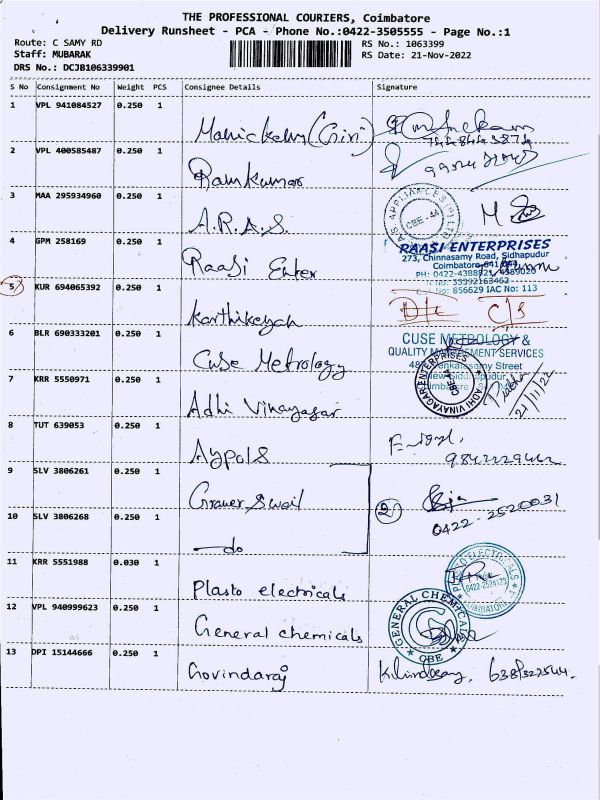 THE PROFESSIONAL COURIERS, Coimbatore
Delivery Runsheet - PCA - Phone No.:0422-3505555 - Page No.:1
Route: C SAMY RD
RS No.: 1063399
Staff: MUBARAK
RS Date: 21-Nov-2022
DRS No.: DCJB106339901
S No Consignment No Weight PCS Consignee Details Signature
1 VPL 941084527 0.250 1
Manickam (Giri)
2 VPL 400585487 0.250 1
Ramkumar
3 MAA 295934960 0.250 1
A.R.A.S.
A.S APPLIANCES (P) LTD
CBE - 44
4 GPM 258169 0.250 1
Raasi Enter
RAASI ENTERPRISES
273, Chinnasamy Road, Sidhapudur
Coimbatore-641 044
PH: 0422-4388829, 4389020
5 KUR 694065392 0.250 1
No: 856629 IAC No: 113
Karthikeyan
D/L C/S
6 BLR 690333201 0.250 1
Cuse Metrology
CUSE METROLOGY &
QUALITY MANAGEMENT SERVICES
7 KRR 5550971 0.250 1
Adhi Vinayagar
ADHI VINAYAGAR ENTERPRISES
CBE
21/11/22
8 TUT 639053 0.250 1
Aypols
9842229442
9 SLV 3806261 0.250 1
Graver Swail
2
0422-2520031
10 SLV 3806268 0.250 1
do
11 KRR 5551988 0.030 1
Plasto electricals
PLASTO ELECTRICALS
COIMBATORE
12 VPL 940999623 0.250 1
General chemicals
GENERAL CHEMICALS
CBE
13 DPI 15144666 0.250 1
Govindaraj